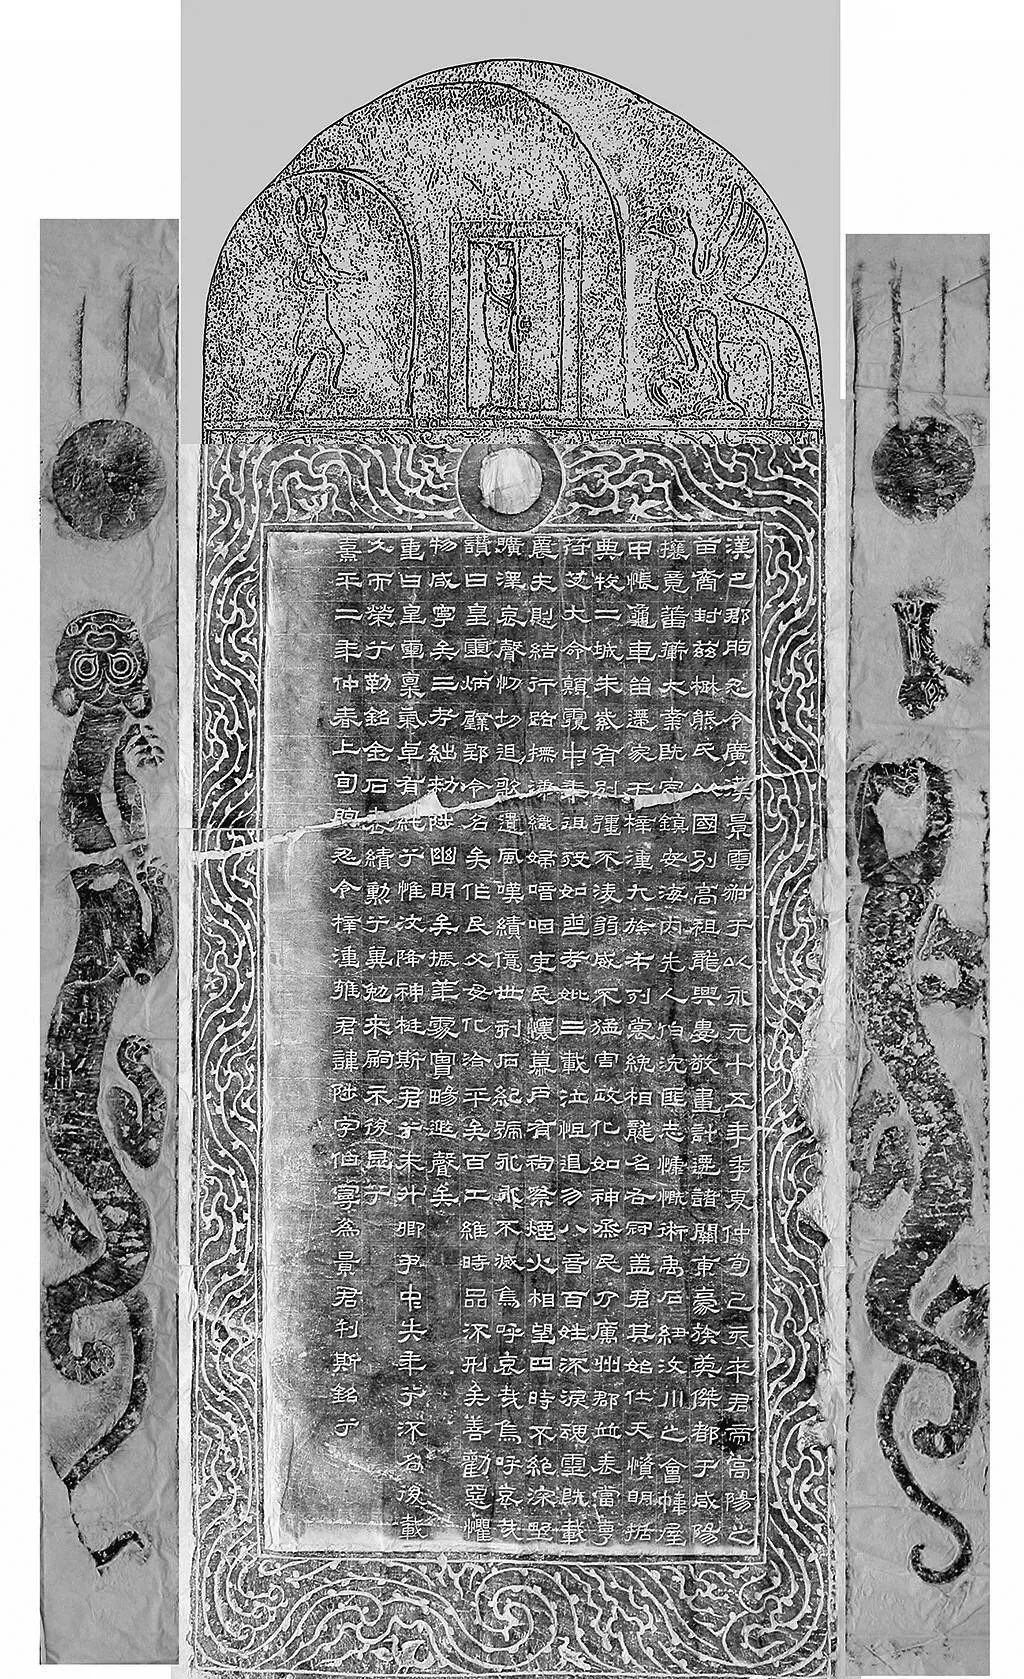 漢巴郡朐忍令廣漢景雲叔于以永元十五年季夏仲旬己亥卒君帝高陽之
苗裔封茲楚熊氏以國別高祖龍興婁敬畫計遷諸關東豪族英傑都于咸陽
攘竟蕃衛大業既定鎮安海內先人伯況匪志慷慨術禹石紐汶川之會幃屋
甲帳龜車留遰家于梓潼九族布列裳絻相龍名右冠盖君其始仕天資明括
典牧二城朱紫有別彊不凌弱威不猛害政化如神烝民乃厲州郡並表當亨
苻艾大命顛覆中年徂歿如喪考妣三載泣怛遏勿八音百姓流淚魂靈既載
農夫惻結行路撫涕織婦喑咽吏民懷慕戶有祠祭煙火相望四時不絕深野
曠澤哀聲忉切追歌遺風嘆績億世刻石紀號永永不滅烏呼哀哉烏呼哀哉
讚曰皇靈炳璧郢令名矣作民父母化洽平矣百工維時品流刑矣善勸惡懼
物咸寧矣三考絀敕陟幽明矣振華處實暘遐聲矣
重曰皇靈稟氣卓有純兮惟汶降神挺斯君兮未升卿尹中失年兮流名後載
久而榮兮勒銘金石表績勳兮冀勉來嗣示後昆兮
熹平二年仲春上旬朐忍令梓潼雍君諱陟字伯寧為景君刊斯銘兮